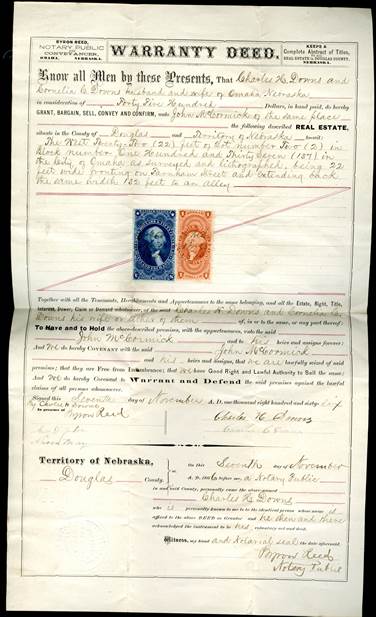 BYRON REED,
NOTARY PUBLIC
AND
CONVEYANCER,
OMAHA, NEBRASKA.
WARRANTY DEED.
KEEPS A
Complete Abstract of Titles,
REAL ESTATE in DOUGLAS COUNTY,
NEBRASKA.
Know all Men by these Presents, That Charles H. Downs and
Cornelia C Downs husband and wife of Omaha Nebraska
in consideration of Forty Five Hundred Dollars, in hand paid, do hereby
GRANT, BARGAIN, SELL, CONVEY AND CONFIRM, unto John McCormick of the same place
the following described REAL ESTATE,
situate in the County of Douglas and Territory of Nebraska to-wit:
The West Twenty Two (22) feet of Lot number Two (2) in
Block number One Hundred and Thirty Seven (137) in
the City of Omaha as surveyed and lithographed, being 22
feet wide fronting on Farnham Street and extending back
the same width 132 feet to an alley
Together with all the Tenements, Hereditaments and Appurtenances to the same belonging, and all the Estate, Right, Title,
Interest, Dower, Claim or Demand whatsoever, of the said Charles H Downs and Cornelia C.
Downs his wife or either of them of, in or to the same, or any part thereof:
To Have and to Hold the above-described premises, with the appurtenances, unto the said
John McCormick and to his heirs and assigns forever:
And We do hereby COVENANT with the said John McCormick
and his heirs and assigns, that we are lawfully seized of said
premises; that they are free from Incumbrance; that We have Good Right and Lawful Authority to Sell the same:
And We do hereby Covenant to Warrant and Defend the said premises against the lawful
claims of all persons whomsoever.
Signed this Seventh day of November A. D. one thousand eight hundred and sixty six
by Charles H Downs
In presence of
Byron Reed
Charles H. Downs
Territory of Nebraska,
Douglas County.
On this Seventh day of November
A. D. 1866 before me, a Notary Public
in and said County, personally came the above-named
Charles H. Downs
who is personally known to me to be the identical person whose name is
affixed to the above DEED as Grantor and he then and there
acknowledged the instrument to be his voluntary act and deed.
Witness, my hand and Notarial seal the date aforesaid.
Byron Reed
Notary Public